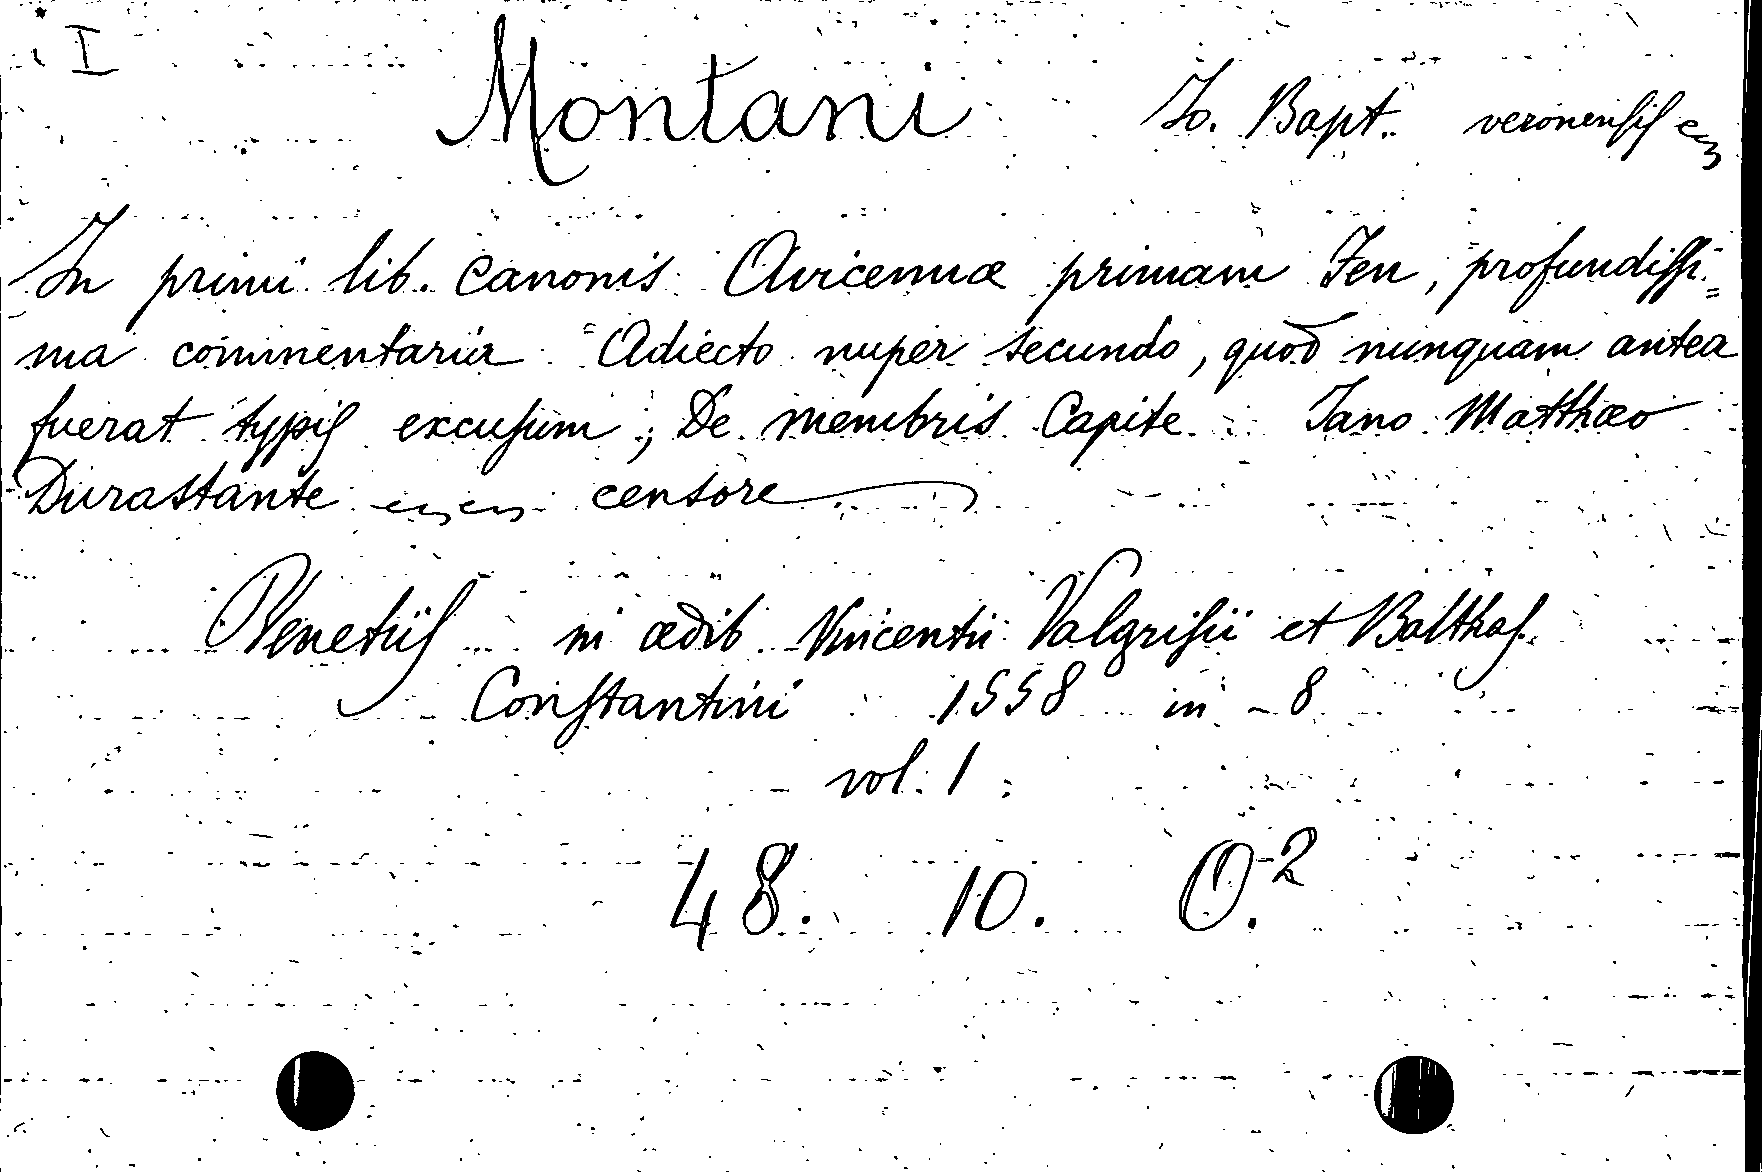 I
Montani Io. Bapt. veronensis
In primi lib. Canonis Avicennæ primam Fen, profundissi=
ma commentaria Adiecto nuper secundo, quod nunquam antea
fuerat typis excusum; De membris Capite Iano Matthæo
Durastante censore
Venetiis in ædib Vincentii Valgrisii et Balthas.
Constantini 1558 in - 8
vol. 1
48. 10. O.2